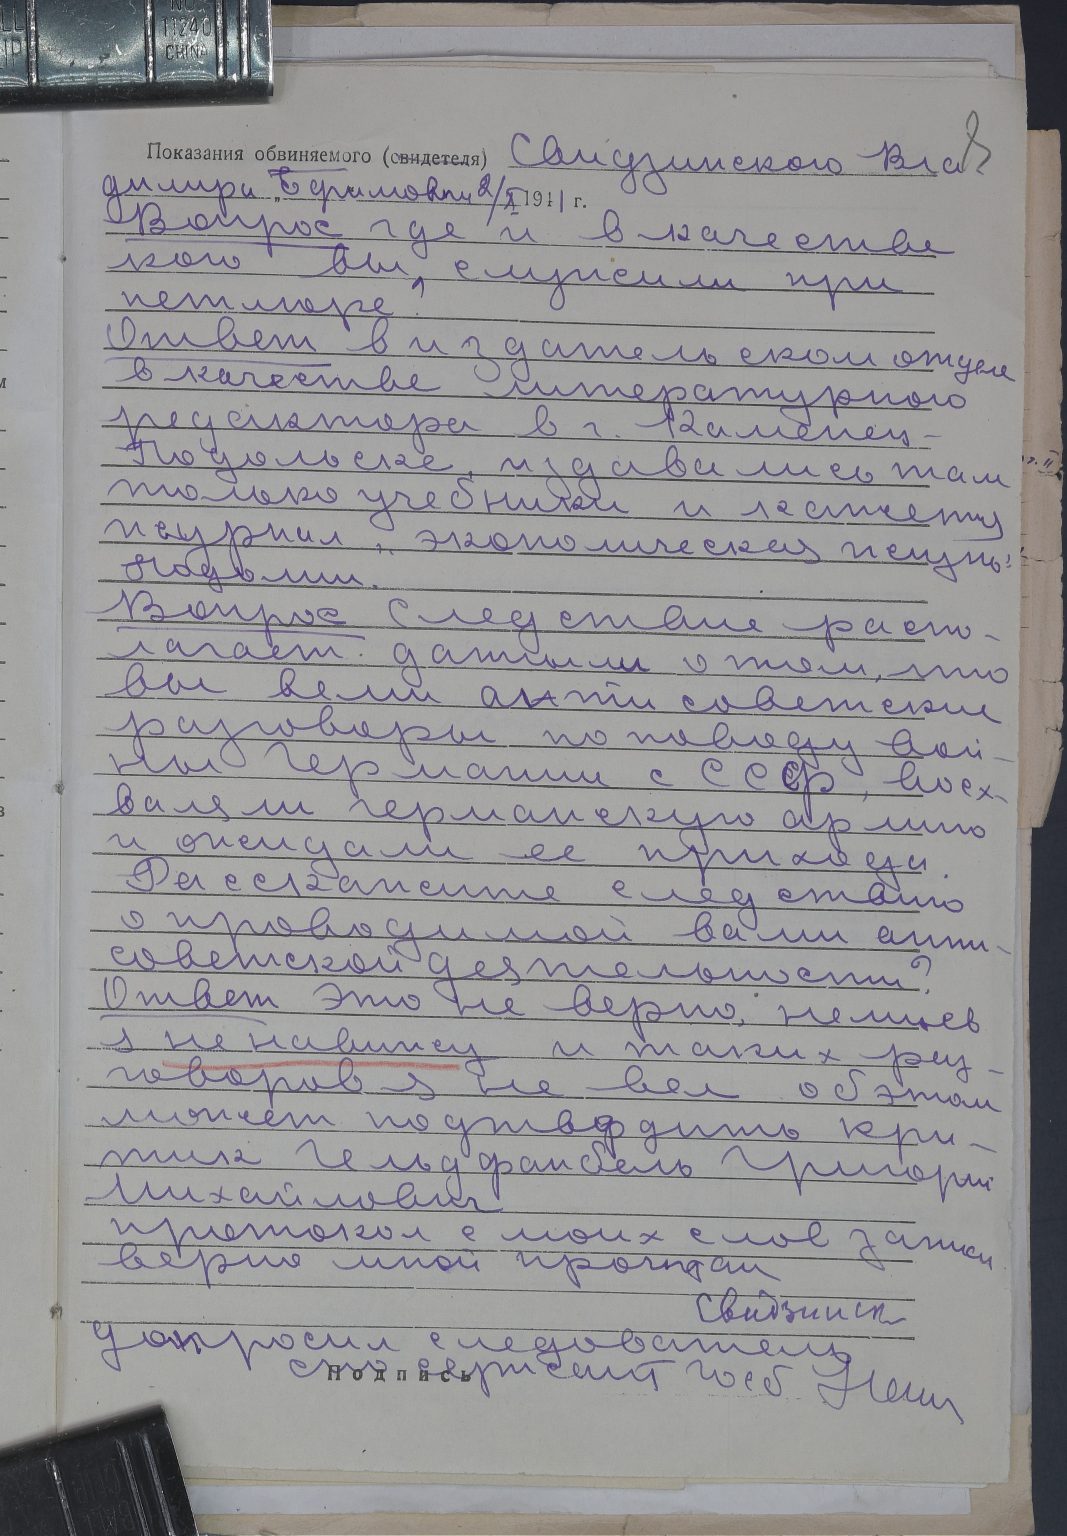 No.
11240
CHINA
8
Показания обвиняемого (свидетеля) Свидзинского Вла
димира Ефимовича 2/X 1941 г.
Вопрос где и в качестве
кого вы служили при
петлюре?
Ответ в издательском отделе
в качестве литературного
редактора в г. Каменец-
Подольске, издавались там
только учебники и кажется
журнал „экономическая жизнь"
Подолии.
Вопрос Следствие распо-
лагает данными о том, что
вы вели антисоветские
разговоры по поводу вой-
ны Германии с СССР, восх-
валяли германскую армию
и ожидали ее прихода.
Расскажите следствию
о проводимой вами анти-
советской деятельности?
Ответ Это не верно, немцев
я ненавижу и таких раз-
говоров я не вел об этом
может подтвердить кри-
тик Гельдфанбель Григорий
Михайлович
протокол с моих слов записан
верно мной прочитан
Свидзинск
допросил следователь
сержант госб
Подпись